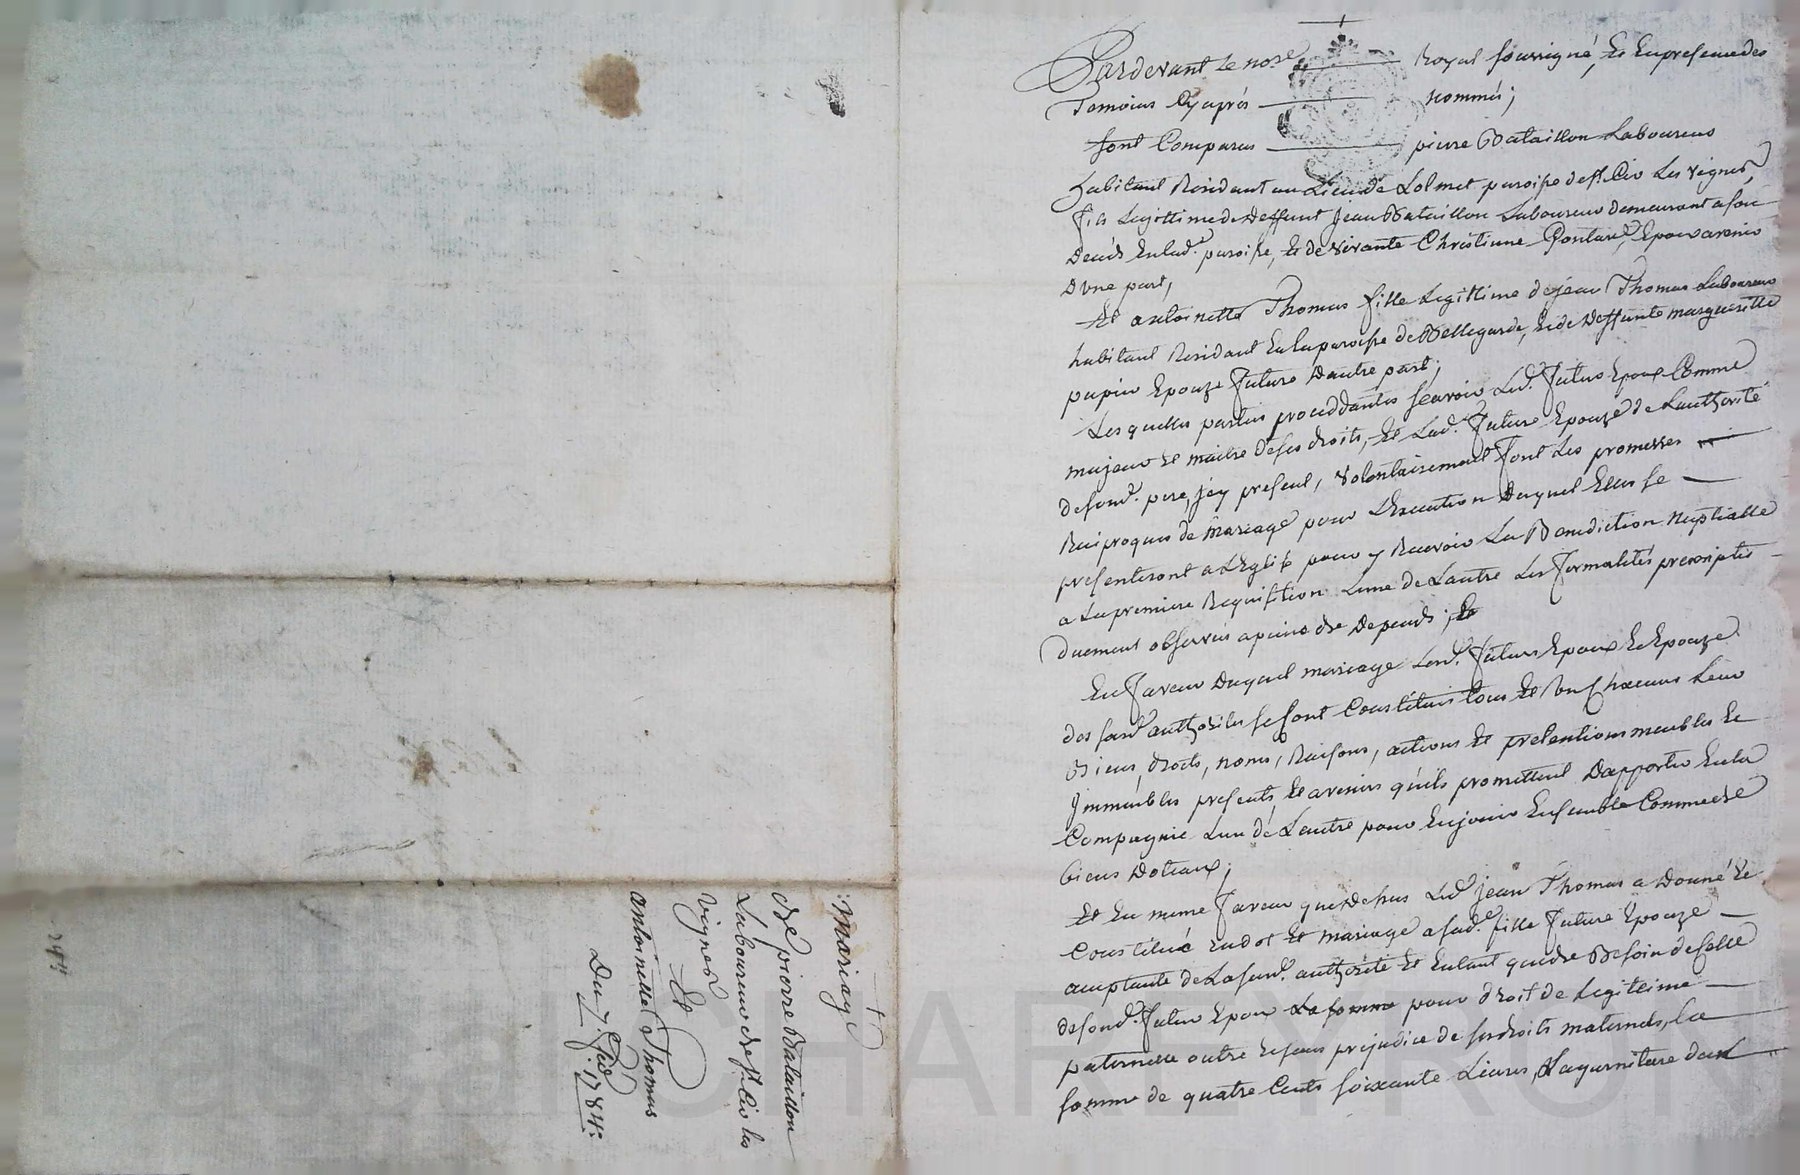 Pardevant Le no.re Royal soussigné, Et En presence des
Temoins Cy après nommés;
sont Comparus pierre Bataillon Laboureur
habitant Residant au Lieu de Lolmet paroisse de st. Cir Les vignes,
fils Legittime de deffunt Jean Bataillon Laboureur demeurant a son
Decéds En lad.e paroisse, Et de vivante Christinne Gontard, Epoux avenir
D'une part,
Et antoinette Thomas fille Legittime de jean Thomas Laboureur
habitant Residant En la paroisse de Bellegarde, Et de Deffunte margueritte
papin Epouze future Dautre part;
Les quelles parties proceddantes sçavoir Led. futur Epoux Comme
majeur et maitre de ses droits, Et Lad.e future Epouze de Lauthorité
de sond. pere, jcy present, volontairement font Les promesses
Reciproques de mariage pour L'Execution Duquel Elles se
presenteront a L'Eglise pour y Recevoir La Benediction Nuptialle
a La premiere Requisition Lune de Lautre Les formalités prescriptes
duement observées a peine de Depends; Et
En faveur Duquel mariage Lesd. futurs Epoux Et Epouze
des susd. authorités se sont Constitués tous Et Un Chacuns Leur
Biens, droits, noms, Raisons, actions Et pretentions meubles Et
Jmmeubles presents, Et avenirs qu'ils promettent D'apporter En la
Compagnie Lun de Lautre pour En jouir Ensemble Comme de
biens Dotaux;
Et En même faveur que Dessus Led. jean Thomas a Donné Et
Constitué en dot Et mariage a sad.e fille future Epouze
acceptante de La susd. authorité Et En tant que de Besoin de Celle
de sond. futur Epoux La somme pour droit de Legitime
paternelle outre Et sans prejudice de ses droits maternels, La
somme de quatre Cents soixante Livres, La garniture dun
+
Mariage
de pierre Bataillon
Laboureur de st. Cir les
vignes
Et
antoinette Thomas
Du 7. 1784.